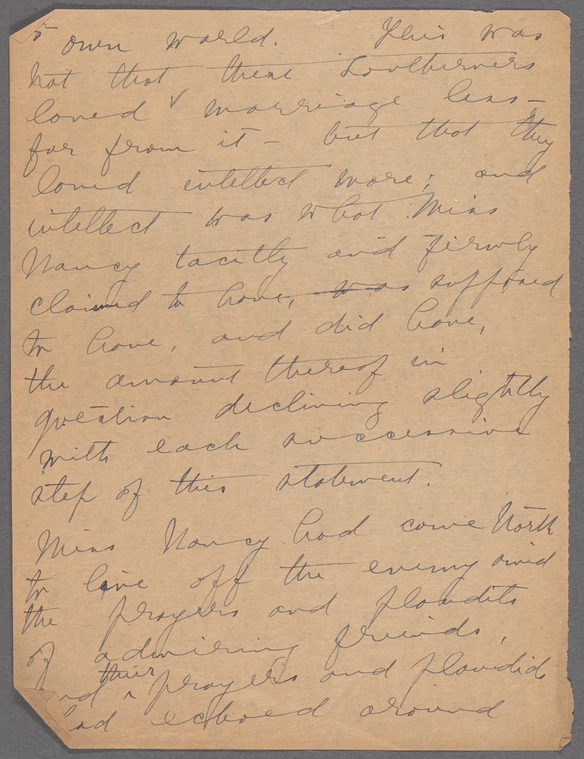 5 own world. This was
not that these Southerners
loved marriage less —
far from it — but that they
loved intellect more; and
intellect was what Miss
Nancy tacitly and firmly
claimed to have, was supposed
to have, and did have,
the amount thereof in
question declining slightly
with each successive
step of this statement.
Miss Nancy had come North
to live off the enemy amid
the prayers and plaudits
of admiring friends,
and their prayers and plaudits
had echoed around